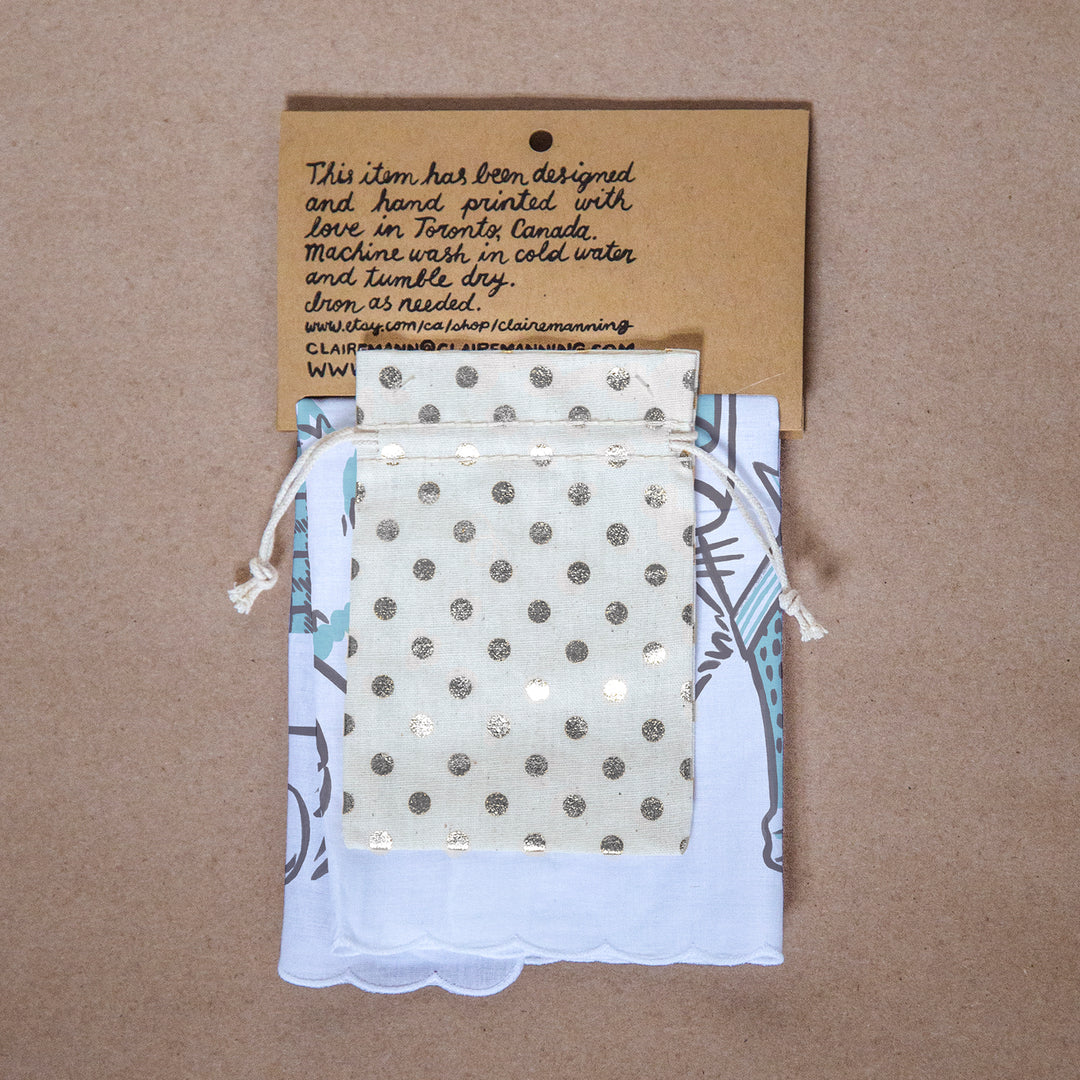 This item has been designed
and hand printed with
love in Toronto, Canada.
Machine wash in cold water
and tumble dry.
Iron as needed.
www.etsy.com/ca/shop/clairemanning
CLAIREMANN@CLAIREMANNING.COM
WWW.